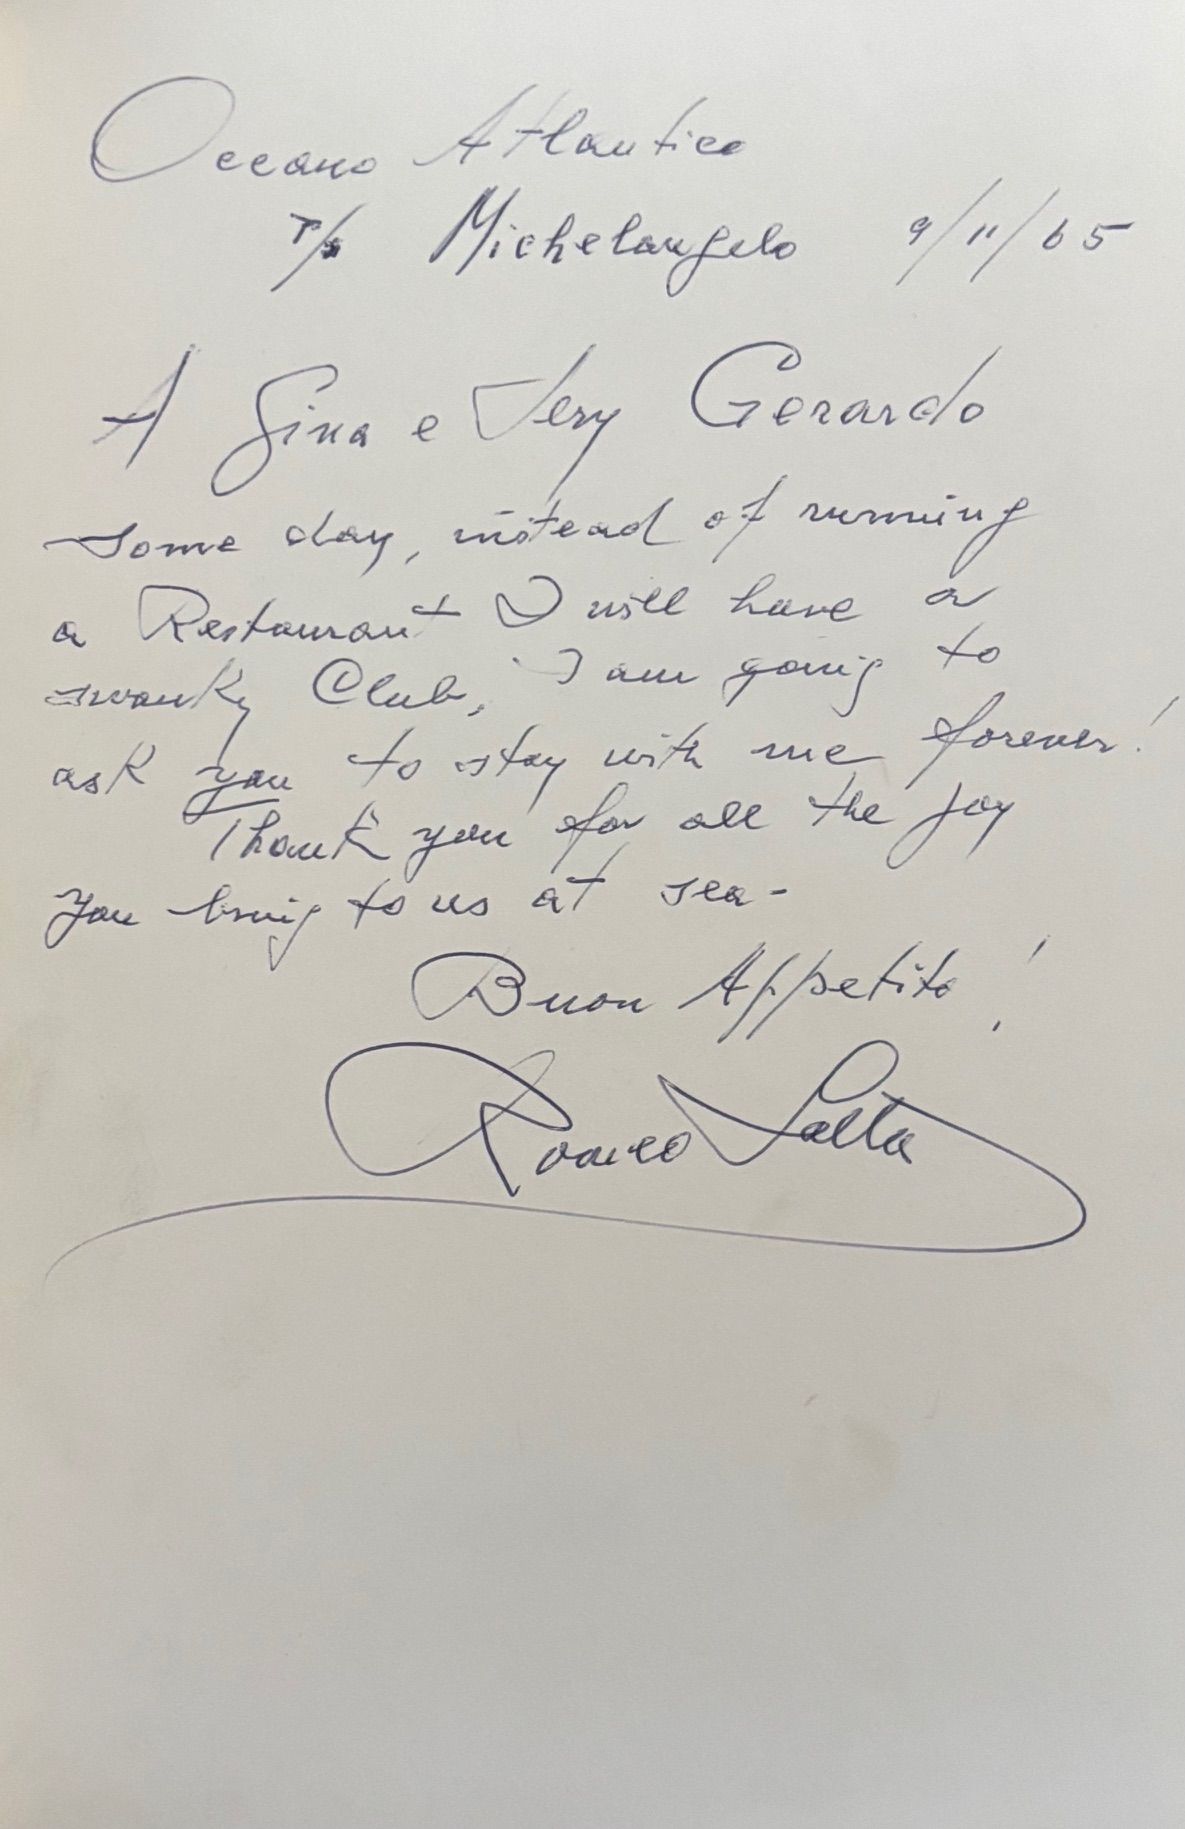 Oceano Atlantico
T/s Michelangelo 9/11/65
A Gina e Jery Gerardo
some day, instead of running
a Restaurant I will have a
swanky Club, I am going to
ask you to stay with me forever!
Thank you for all the joy
you bring to us at sea-
Buon Appetito!
Romeo Salta